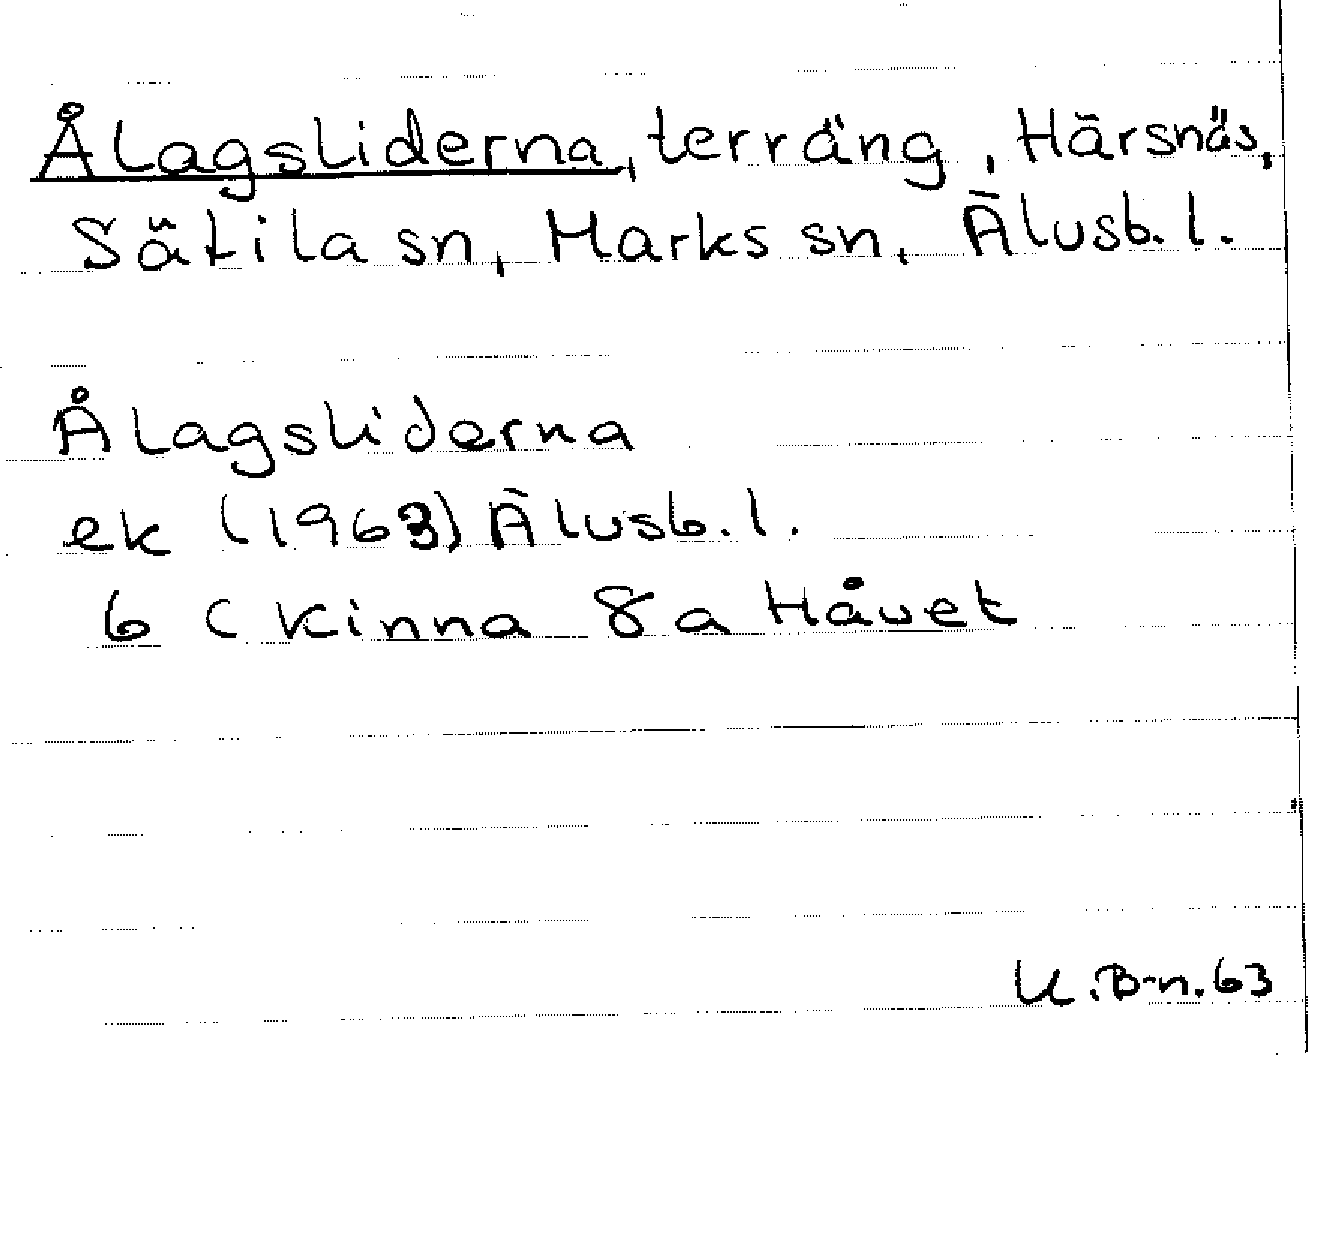 Ålagsliderna, terräng, Härsnäs,
Sätila sn, Marks sn, Älvsb. l.
Ålagsliderna
ek (1963) Älvsb. l.
6 C Kinna 8 a Håvet
U.B-n.63